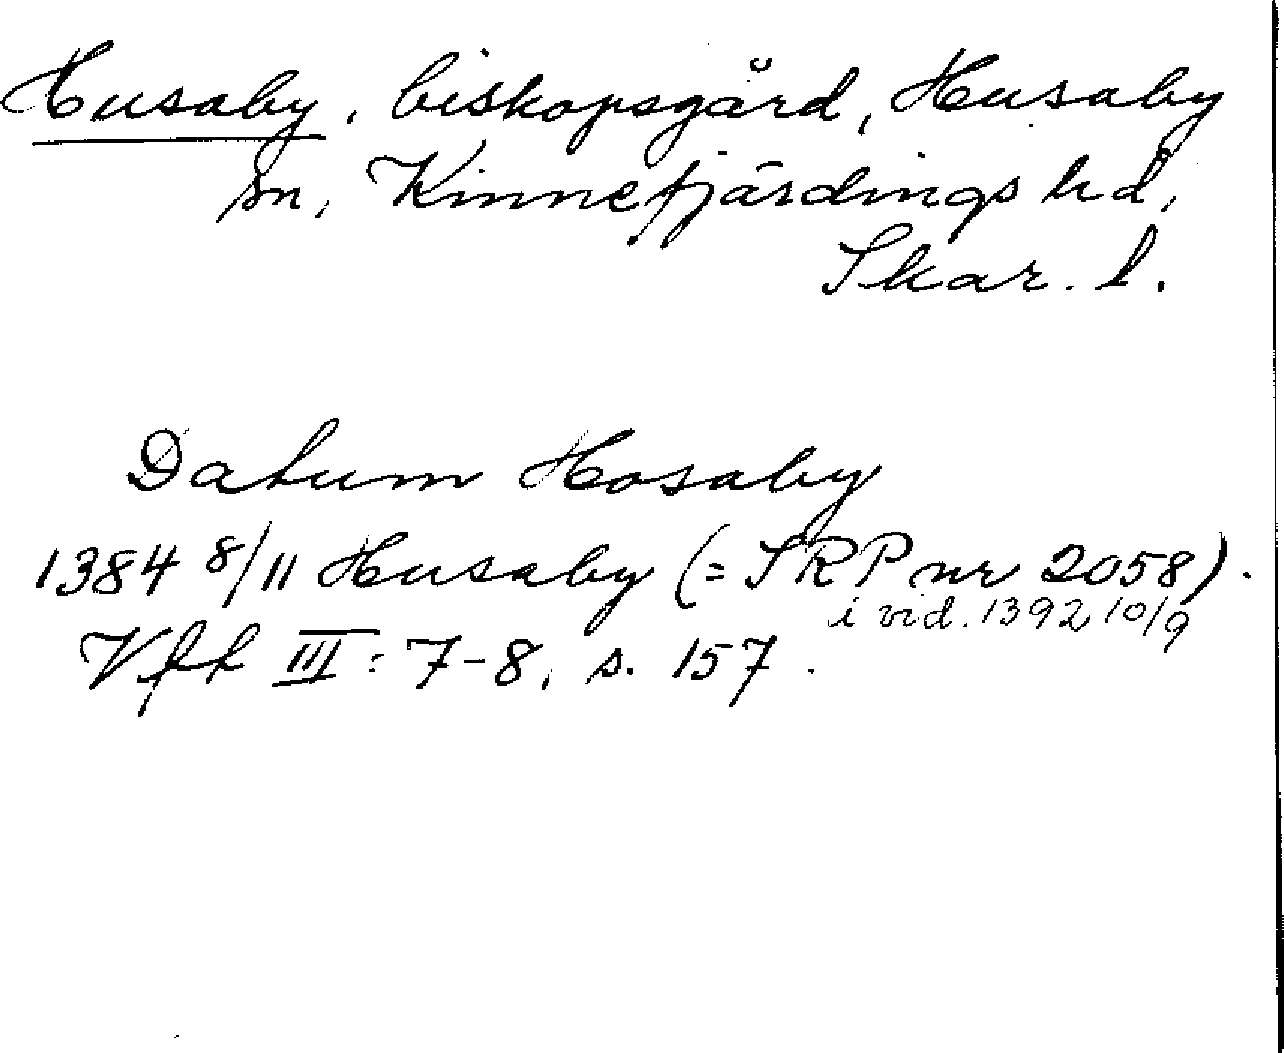 Husaby, biskopsgård, Husaby
sn, Kinnefjärdings hd,
Skar. l.
Datum Hosaby
1384 8/11 Husaby (= SRP nr 2058).
i vid. 1392 10/9
Vfft III: 7-8, s. 157.